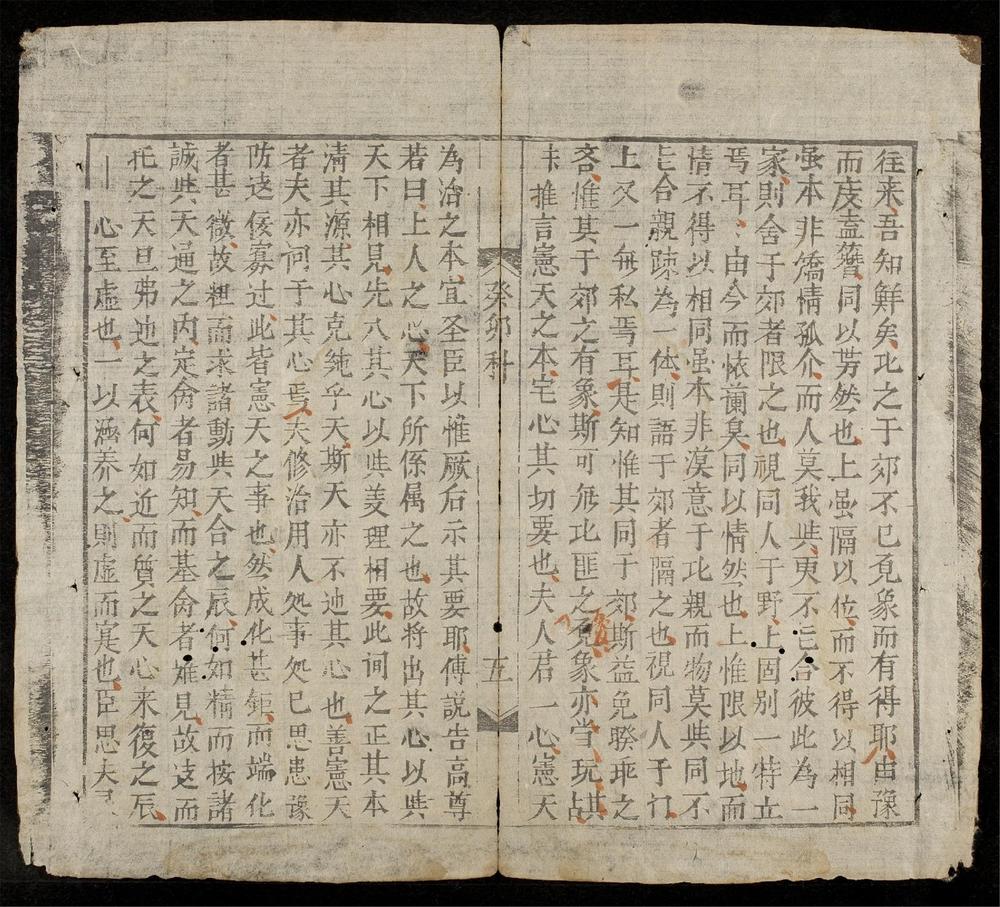 往来吾知鮮矣比之于郊不已免象而有得耶由豫
而茂盍簪同以势然也上虽隔以位而不得以相同
虽本非矯情孤介而人莫我共更不忘合彼此為一
家則舍于郊者限之也視同人于野上固别一特立
焉耳由今而依蘭臭同以情然也上惟限以地而
情不得以相同虽本非漠意于比親而物莫共同不
忘合親踈為一体則語于郊者隔之也視同人于门
上又一無私焉耳是知惟其同于郊斯益免睽乖之
吝惟其于郊之有象斯可無比匪之免象亦當玩其占
推言憲天之本宅心其切要也夫人君一心憲天
癸卯科
五
為治之本宜圣臣以惟厥后示其要耶傅説告高尊
若曰上人之心天下所係属之也故将出其心以共
天下相見先入其心以共美理相要此词之正其本
清其源其心克純乎天斯天亦不迪其心也善憲天
者夫亦何于其心焉夫修治用人処事処已思患豫
防这俀寡过此皆憲天之事也然成化甚鉅而端化
者甚微故粗而求諸動共天合之辰何如精而按諸
誠共天通之内定命者易知而基命者难見故这而
托之天旦弗迪之表何如近而質之天心来復之辰
一心至虚也一以涵养之則虚而寔也臣思大君